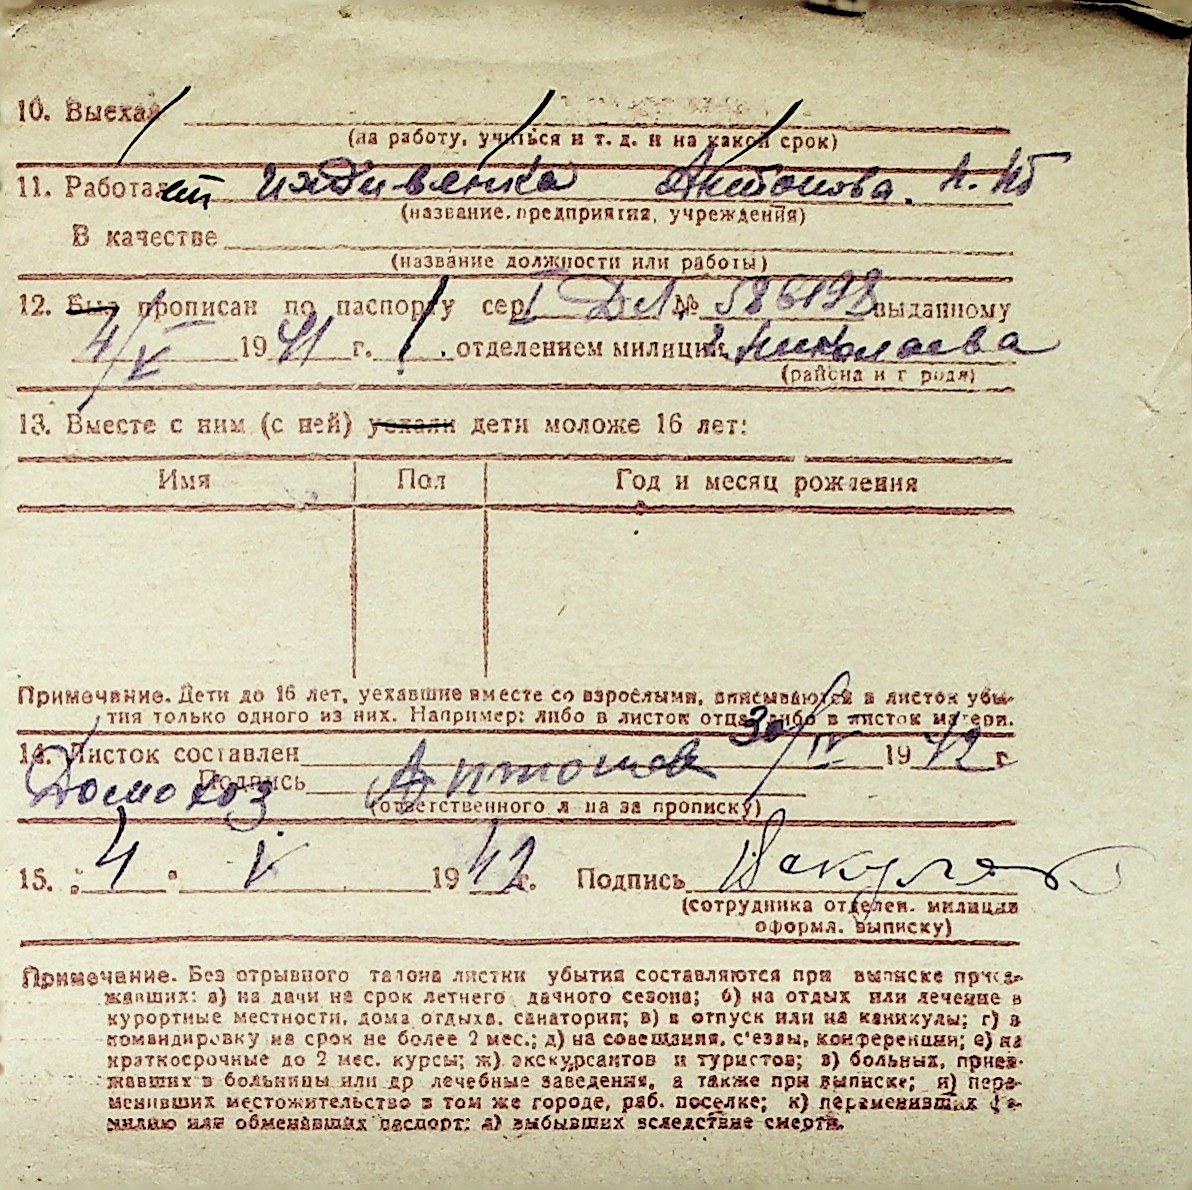 10. Выехал
(на работу, учиться и т. д. и на какой срок)
11. Работает иждивенка Антонова.
(название предприятия, учреждения)
В качестве
(название должности или работы)
12. Был прописан по паспорту сер. I ДЛ № 586198 выданному
4/V 1941 г. 1. отделением милиции г. Николаева
(района и города)
13. Вместе с ним (с ней) уехали дети моложе 16 лет:
Имя Пол Год и месяц рождения
Примечание. Дети до 16 лет, уехавшие вместе со взрослыми, вписываются в листок убы-
тия только одного из них. Например: либо в листок отца либо в листок матери.
14. Листок составлен 30/IV 1942 г
Домохоз Подпись
(ответственного л на за прописку)
15. „4" V 1942 г. Подпись
(сотрудника отделен. милиции
оформл. выписку)
Примечание. Без отрывного талона листки убытия составляются при выписке приез-
жавших: а) на дачи на срок летнего дачного сезона; б) на отдых или лечение в
курортные местности, дома отдыха, санатории; в) в отпуск или на каникулы; г) в
командировку на срок не более 2 мес.; д) на совещания, с'езды, конференции; е) на
краткосрочные до 2 мес. курсы; ж) экскурсантов и туристов; з) больных, приез-
жавших в больницы или др лечебные заведения, а также при выписке; и) пере-
менивших местожительство в том же городе, раб. поселке; к) переменивших фа-
милию или обменявших паспорт; л) выбывших вследствие смерти.